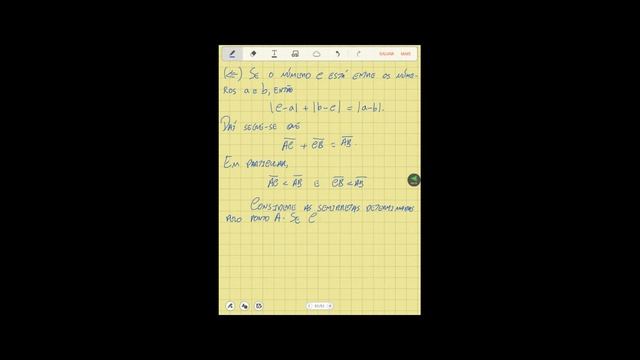 (⇐) SE O NÚMERO C ESTÁ ENTRE OS NÚME-
ROS a E b, ENTÃO
|c-a| + |b-c| = |a-b|.
DAÍ SEGUE-SE QUE
AC + CB = AB.
EM PARTICULAR,
AC < AB E CB < AB
CONSIDERE AS SEMIRRETAS DETERMINADAS
PELO PONTO A. SE C